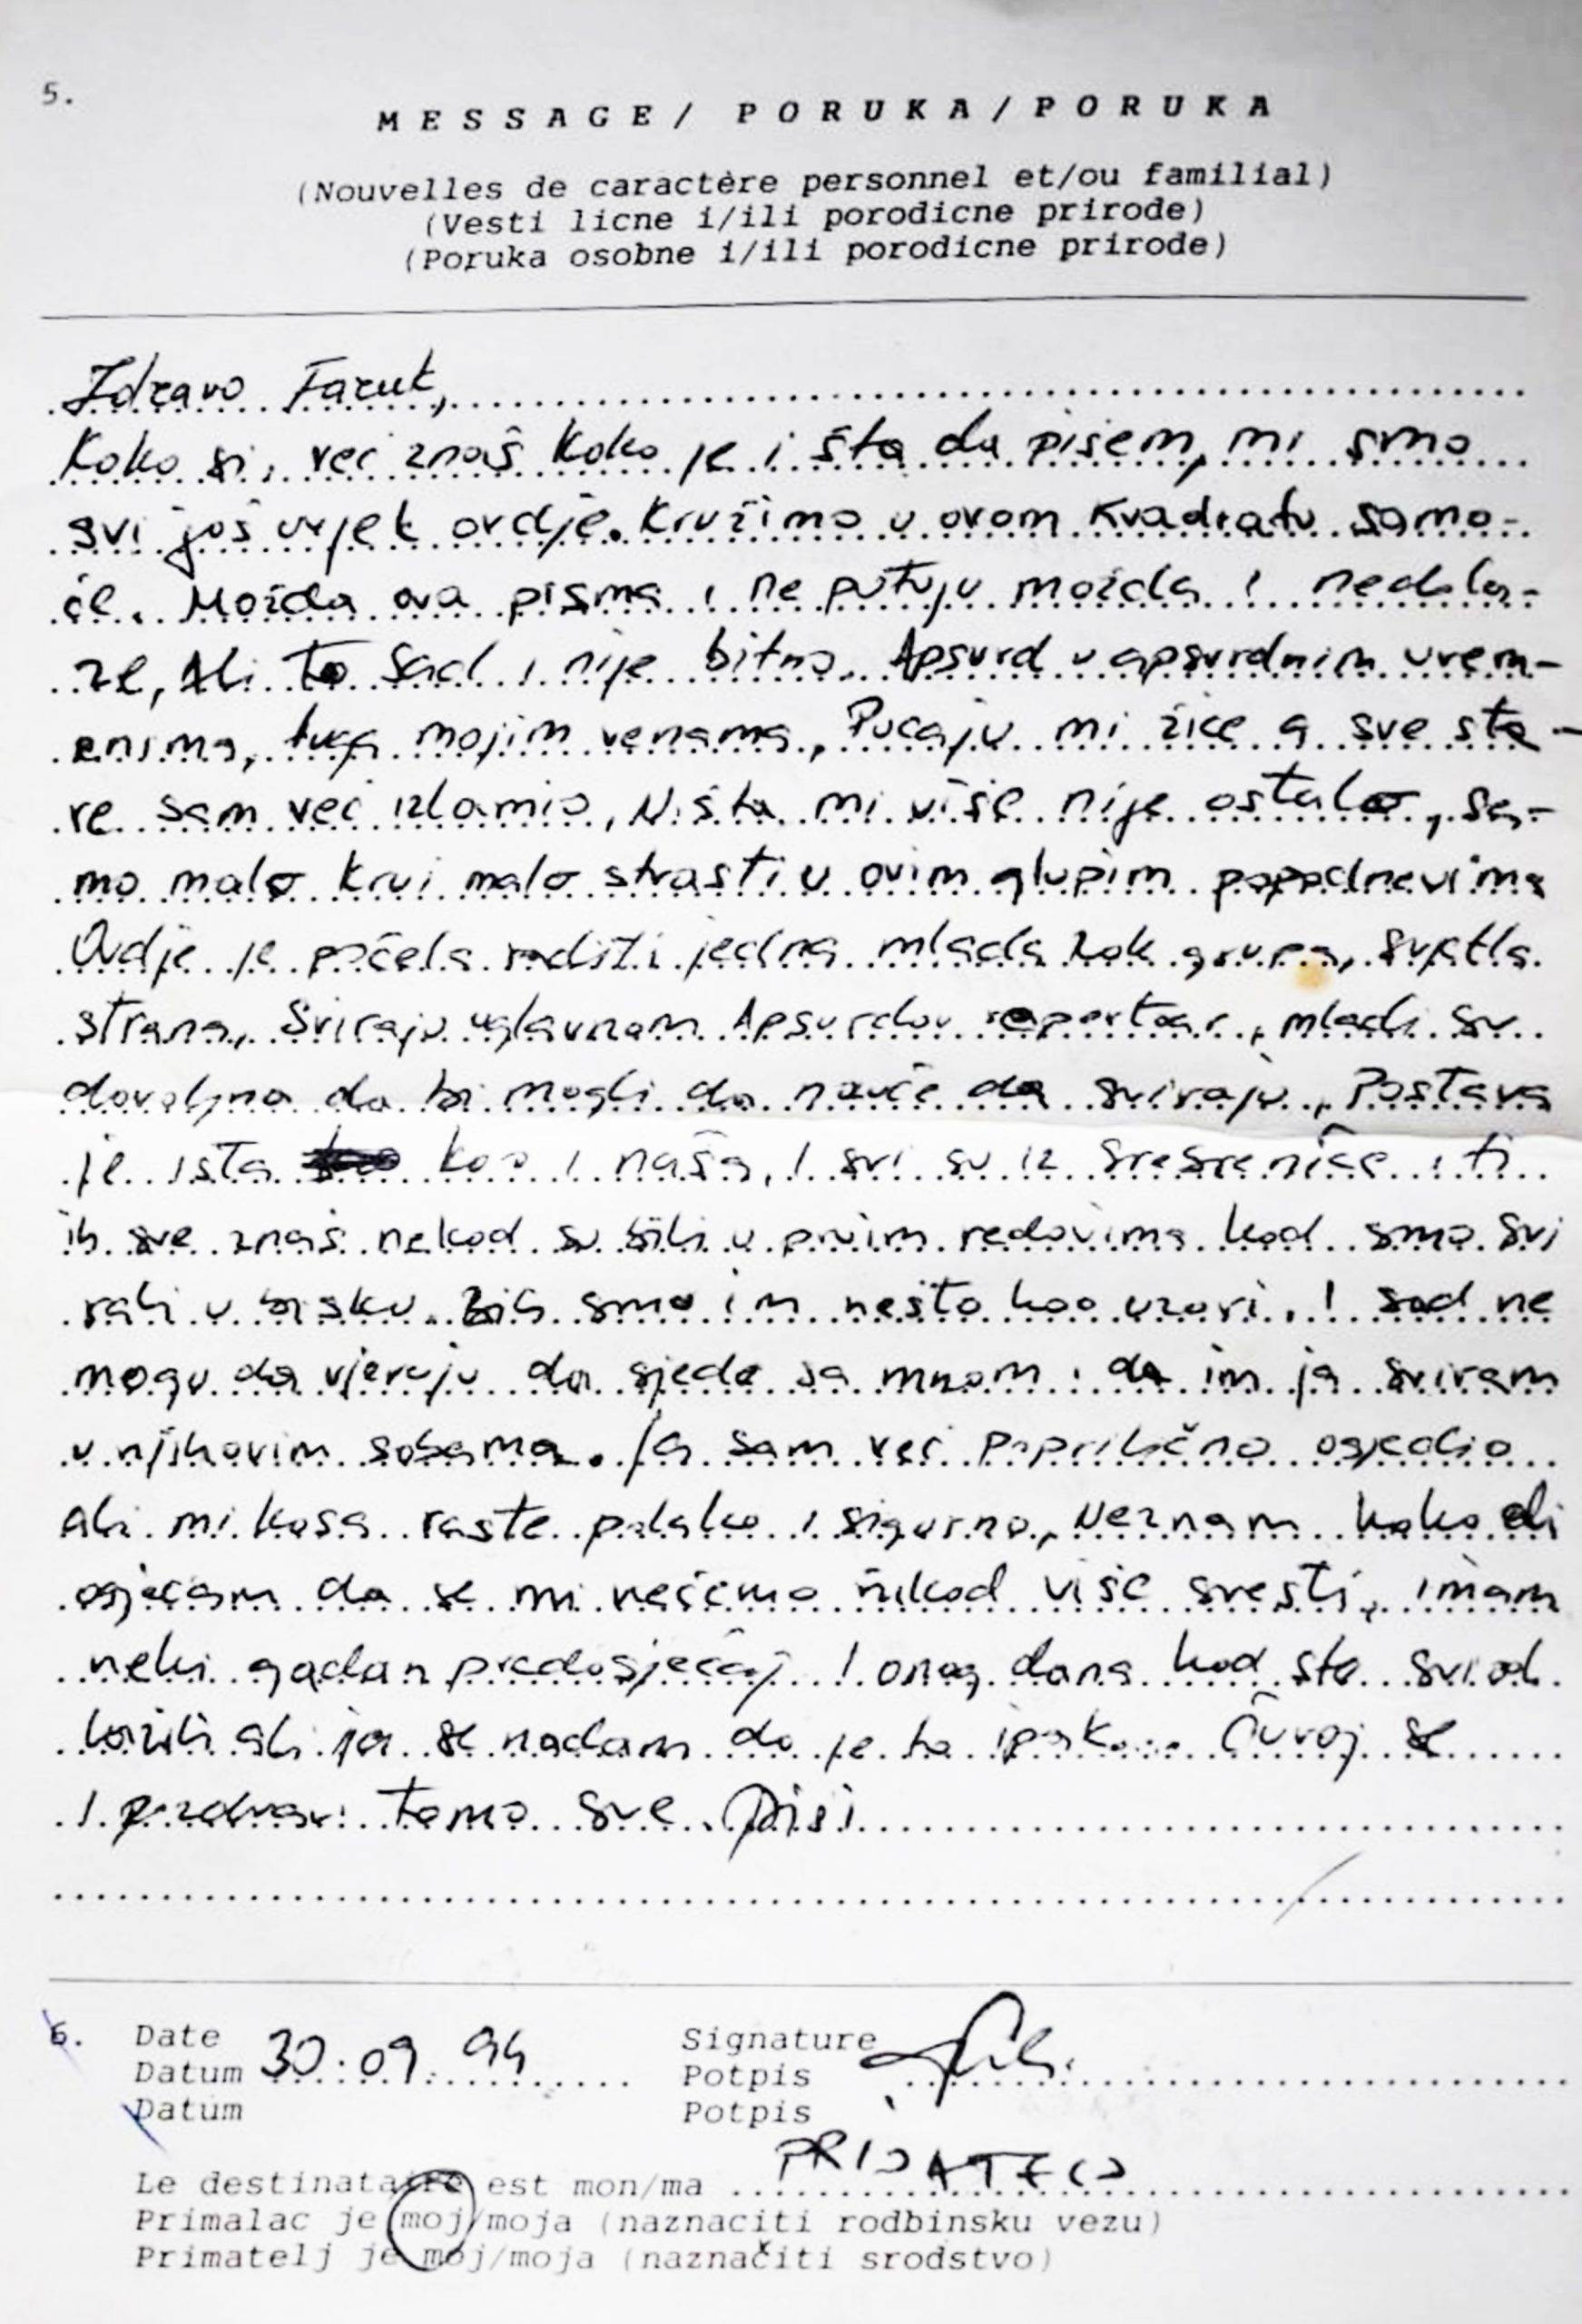 5.
MESSAGE/ PORUKA/PORUKA
(Nouvelles de caractère personnel et/ou familial)
(Vesti licne i/ili porodicne prirode)
(Poruka osobne i/ili porodicne prirode)
Zdravo Faruk,
Kako si, već znaš kako je i šta da pišem, mi smo
svi još uvjek ovdje. Kružimo u ovom kvadratu samo-
će. Možda ova pisma i ne putuju možda i nedola-
ze, Ali to sad i nije bitno. Apsurd u apsurdnim vrem-
enima, tuga mojim venama, Pucaju mi žice a sve sta-
re sam već izlamio, Ništa mi više nije ostalo, sa-
mo malo krvi malo strasti u ovim glupim popodnevima
Ovdje je počela raditi jedna mlada Rok grupa, svjetla
strana, Sviraju uglavnom Apsurdov repertoar, mladi su
dovoljno da bi mogli da nauče da sviraju, Postava
je ista kao i naša, I svi su iz Srebrenice i ti
ih sve znaš nekad su bili u prvim redovima kad smo svi
rali u disku. Bili smo im nešto kao uzori, I sad ne
mogu da vjeruju da sjede sa mnom i da im ja sviram
u njihovim sobama. Ja sam već poprilično osjedio
ali mi kosa raste polako i sigurno, Neznam kako ali
osjećam da se mi nećemo nikad više sresti, imam
neki gadan predosjećaj I onog dana kad ste svi od
lazili ali ja se nadam da je to ipak... Čuvaj se
I pozdravi tamo sve. Piši
6. Date
Datum 30.09.94
Datum
Signature
Potpis
Potpis
Le destinataire est mon/ma PRIJATELJ
Primalac je moj/moja (naznaciti rodbinsku vezu)
Primatelj je moj/moja (naznačiti srodstvo)